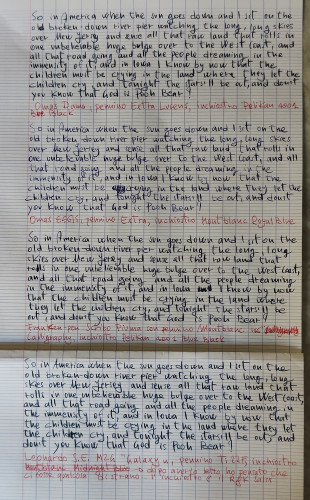 So in America when the sun goes down and I sit on the
old broken-down river pier watching the long, long skies
over New Jersey and sense all that raw land that rolls in
one unbelievable huge bulge over to the West Coast, and
all that road going and all the people dreaming in the
immensity of it and in Iowa I know by now that the
children must be crying in the land where they let the
children cry, and tonight the stars'll be out, and don't you
know that God is Pooh Bear?
Omas Dama, pennino Extra Lucens, inchiostro Pelikan 4001
Black
So in America when the sun goes down and I sit on the
old broken-down river pier watching the long, long skies
over New Jersey and sense all that raw land that rolls in
one unbelievable huge bulge over to the West Coast, and all
that road going, and all the people dreaming in the
immensity of it and in Iowa I know by now that the
children must be crying in the land where they let the
children cry, and tonight the stars'll be out, and don't
you know that God is Pooh Bear?
Omas pennino Extra, inchiostro Mont blanc Royal Blue
So in America when the sun goes down and I sit on the
old broken-down river pier watching the long, long
skies over New Jersey and sense all that raw land that
rolls in one unbelievable huge bulge over to the West Coast,
and all that road going, and all the people dreaming
in the immensity of it and in Iowa I know by now
that the children must be crying in the land where
they let the children cry, and tonight the stars'll be
out, and don't you know that God is Pooh Bear?
con pennino
Calligraphy, inchiostro Pelikan 4001 blue black
So in America when the sun goes down and I sit on the
old broken-down river pier watching the long, long
skies over New Jersey and sense all that raw land that
rolls in one unbelievable huge bulge over to the West Coast,
and all that road going, and all the people dreaming in
the immensity of it, and in Iowa I know by now that
the children must be crying in the land where they
let the children cry, and tonight the stars'll be out, and
don't you know that God is Pooh Bear?
pennino inchiostro
Midnight
inchiostro